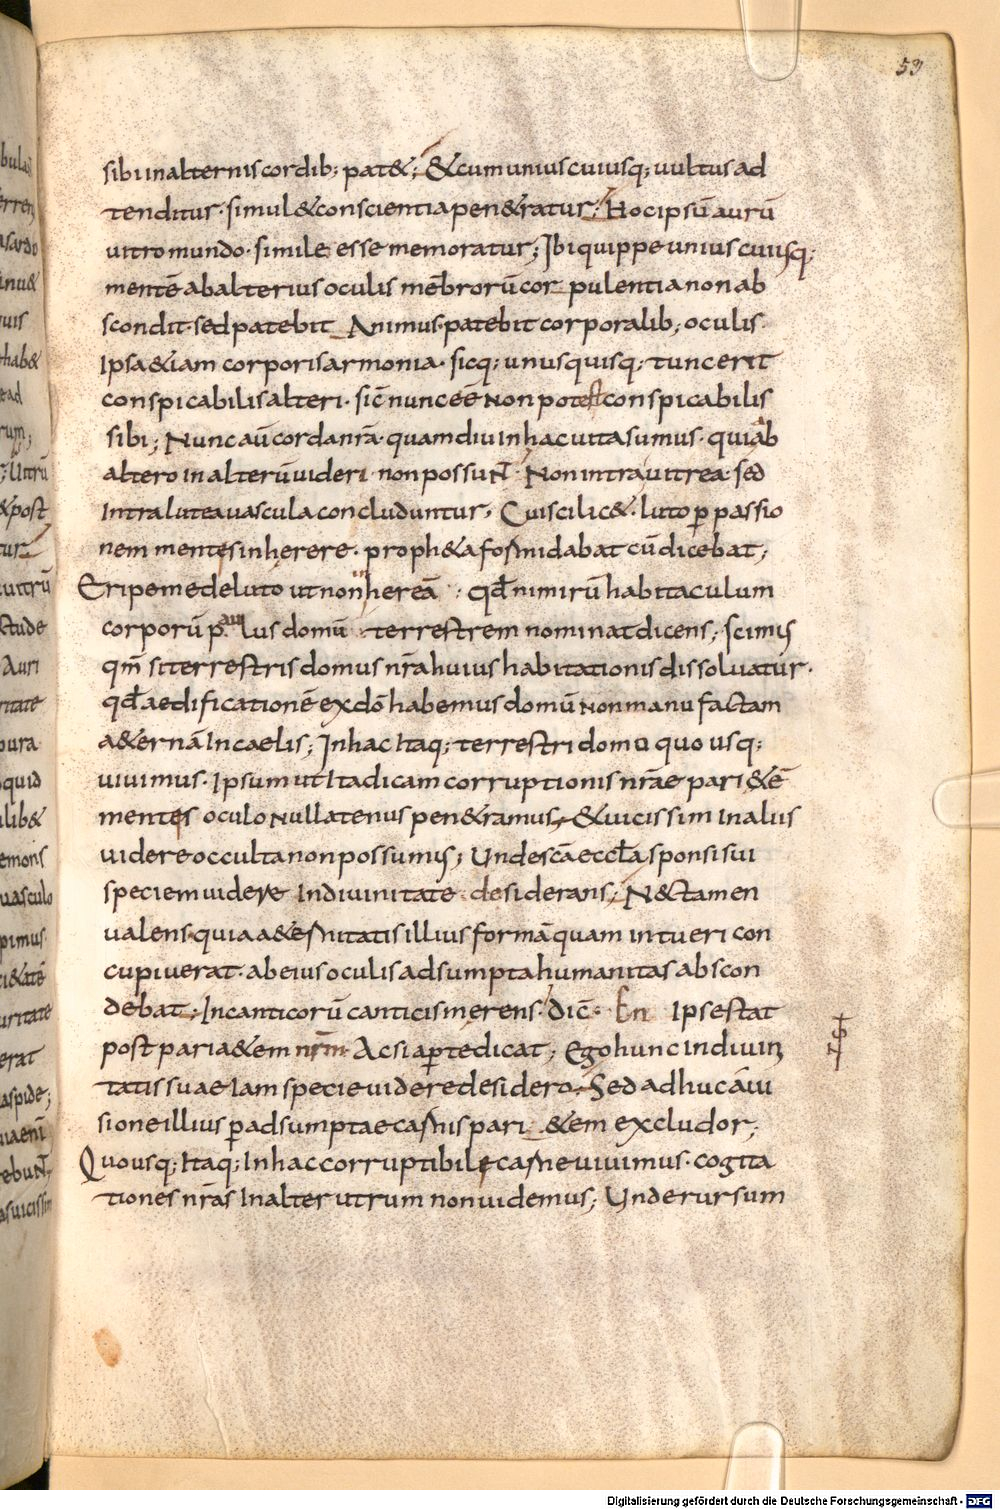 53
sibi inalternis cordib; pat&; & cum unius cuiusq; uultus ad
tenditur · simul & conscientia pen&ratur; Hoc ipsū aurū
uitro mundo · simile esse memoratur; Ibi quippe unius cuiusq;
mentē ab alterius oculis mēbrorū cor pulentia non ab
scondit · sed patebit Animus · patebit corporalib; oculis ·
Ipsa &iam corporis armonia · sicq; unusquisq; tunc erit
conspicabilis alteri · sic̄ nunc eḗ non potest conspicabilis
sibi; Nunc aū corda nr̄a · quamdiu In hac uita sumus · quia ab
altero In alterū uideri non possuNT Non intra uitrea · sed
Intra lutea uascula concluduntur · Cui scilic& · luto ꝑ passio
nem mentes inherere · proph&a formidabat cū dicebat;
Eripe me de luto ut non inhereā : qd̄ nimirū habitaculum
corporū paulus domū terrestrem nominat dicens; scimus
qm̄ si terrestris domus nr̄a huius habitationis dissoluatur ·
qd̄ aedificationē ex dō habemus domū non manu factam
a&ernā In caelis; In hac Itaq; terrestri domo quo usq;
uiuimus · Ipsum ut Ita dicam corruptionis nr̄ae pari&ē
mentes oculo nullatenus pen&ramus, & uicissim In aliis
uidere occulta non possumus; Unde sc̄a eccl̄a sponsi sui
speciem uidere In diuinitate desiderans; N& tamen
ualens quia a&ernitatis illius formā quam intueri con
cupiuerat · ab eius oculis adsumpta humanitas abscon
debat; In canticorū canticis merens dic̄ · En Ipse stat
post pari&em nr̄m · Ac si aperte dicat; Ego hunc In diuini
tatis suae Iam specie uidere desidero · Sed adhuc a ui
sione illius ꝑ adsumptae carnis pari &em excludor;
Quousq; Itaq; In hac corruptibile carne uiuimus · cogita
tiones nr̄as In alterutrum non uidemus; Unde rursum
Digitalisierung gefördert durch die Deutsche Forschungsgemeinschaft - DFG